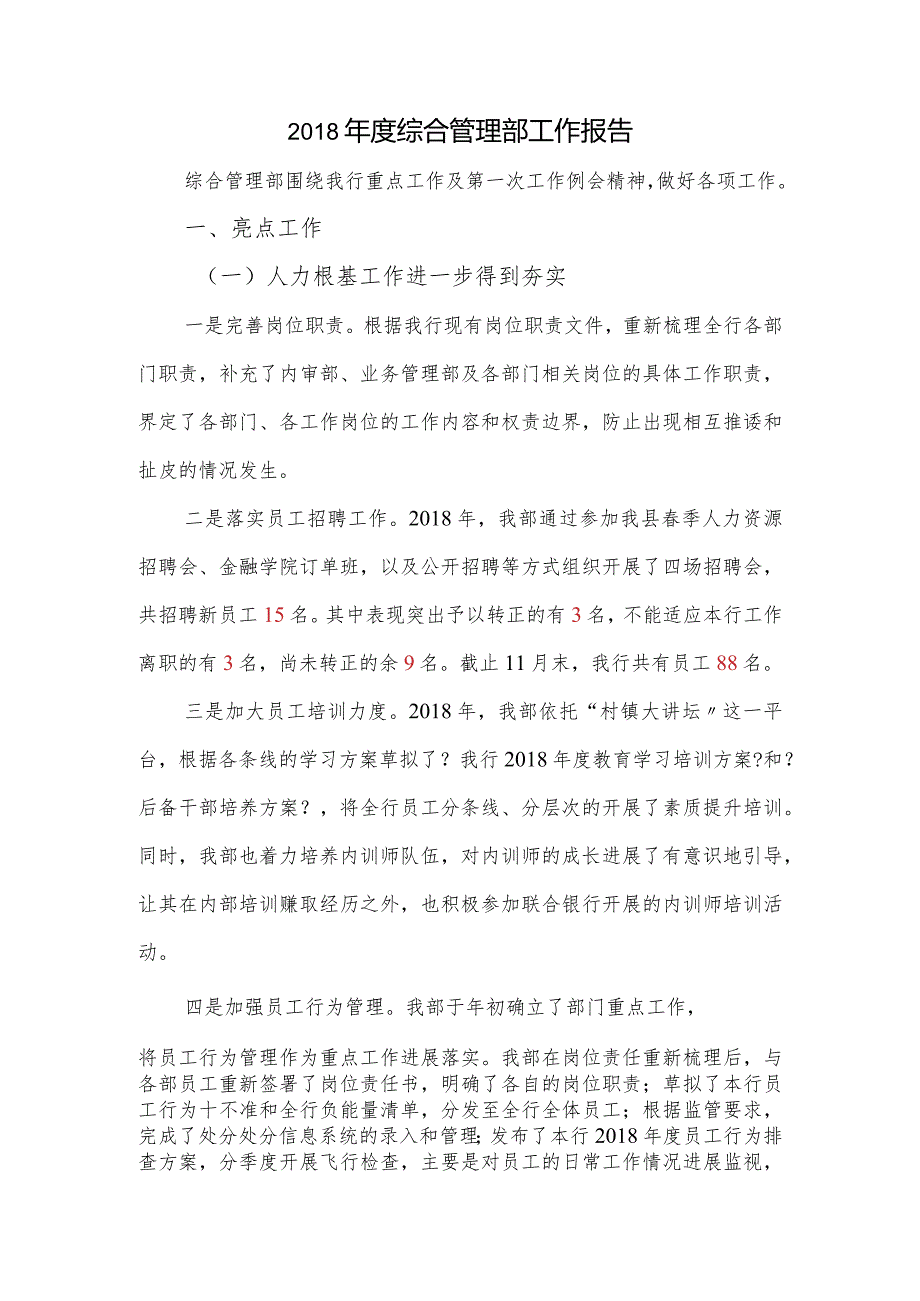 2018 年度综合管理部工作报告
综合管理部围绕我行重点工作及第一次工作例会精神,做好各项工作。
一、亮点工作
（一）人力根基工作进一步得到夯实
一是完善岗位职责。根据我行现有岗位职责文件，重新梳理全行各部
门职责，补充了内审部、业务管理部及各部门相关岗位的具体工作职责，
界定了各部门、各工作岗位的工作内容和权责边界，防止出现相互推诿和
扯皮的情况发生。
二是落实员工招聘工作。2018 年，我部通过参加我县春季人力资源
招聘会、金融学院订单班，以及公开招聘等方式组织开展了四场招聘会，
共招聘新员工 15 名。其中表现突出予以转正的有 3 名，不能适应本行工作
离职的有 3 名，尚未转正的余 9 名。截止 11 月末，我行共有员工 88 名。
三是加大员工培训力度。2018 年，我部依托“村镇大讲坛〃这一平
台，根据各条线的学习方案草拟了？我行 2018 年度教育学习培训方案?和？
后备干部培养方案？，将全行员工分条线、分层次的开展了素质提升培训。
同时，我部也着力培养内训师队伍，对内训师的成长进展了有意识地引导，
让其在内部培训赚取经历之外，也积极参加联合银行开展的内训师培训活
动。
四是加强员工行为管理。我部于年初确立了部门重点工作，
将员工行为管理作为重点工作进展落实。我部在岗位责任重新梳理后，与
各部员工重新签署了岗位责任书，明确了各自的岗位职责；草拟了本行员
工行为十不准和全行负能量清单，分发至全行全体员工；根据监管要求，
完成了处分处分信息系统的录入和管理；发布了本行 2018 年度员工行为排
查方案，分季度开展飞行检查，主要是对员工的日常工作情况进展监视，